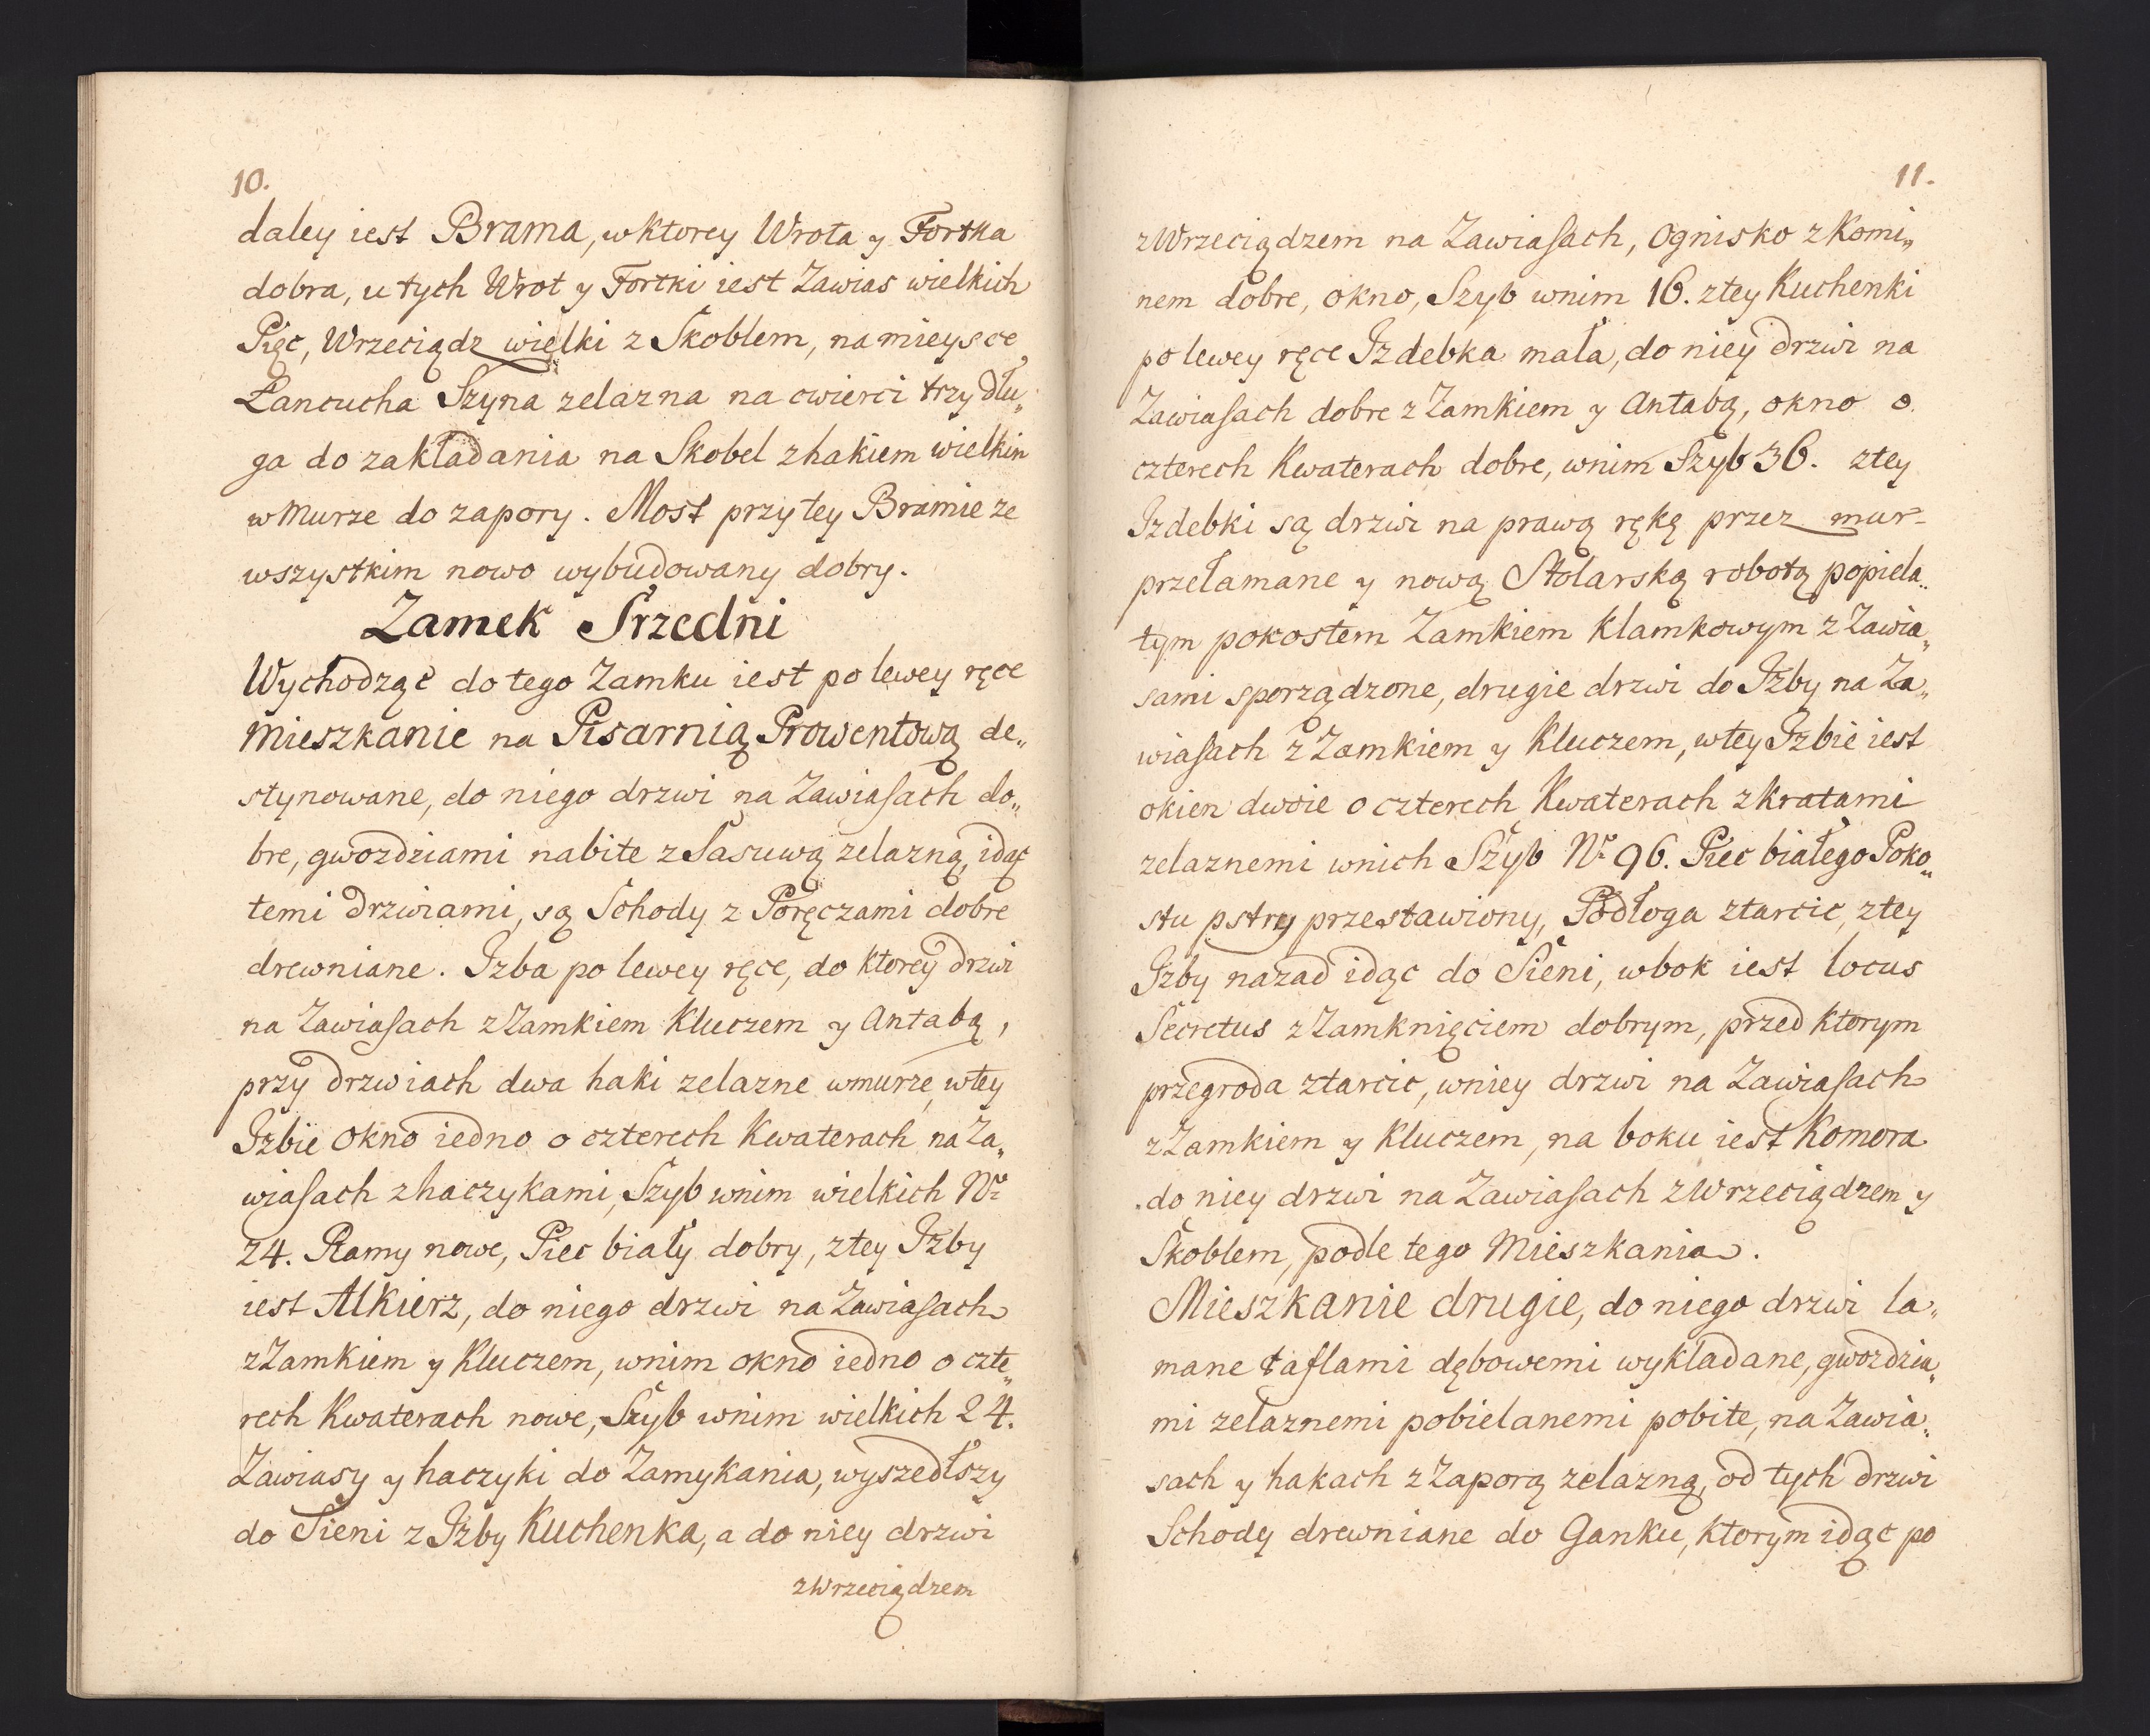 10.
daley iest Brama, w ktorey Wrota y Fortka
dobra, u tych Wrot y Fortki iest Zawias wielkich
Pięc, Wrzeciądz wielki z Skoblem, na mieysce
Łancucha Szyna zelazna na cwierci trzy dłu„
ga do zakładania na Skobel z hakiem wielkim
w Murze do zapory. Most przy tey Bramie ze
wszystkim nowo wybudowany dobry.
Zamek Srzedni
Wychodząc do tego Zamku iest po lewey ręce
Mieszkanie na Pisarnią Prowentową de„
stynowane, do niego drzwi na Zawiasach do„
bre, gwozdziami nabite z Sasuwą zelazną, idąc
temi drzwiami, są Schody z Poręczami dobre
drewniane. Izba po lewey ręce, do ktorey drzwi
na Zawiasach z Zamkiem Kluczem y Antabą,
przy drzwiach dwa haki zelazne w murze, w tey
Izbie Okno iedno o czterech Kwaterach na Za„
wiasach z haczykami, Szyb w nim wielkich Nº
24. Ramy nowe, Piec biały dobry, z tey Izby
iest Alkierz, do niego drzwi na Zawiasach
z Zamkiem y Kluczem, w nim okno iedno o czte„
rech Kwaterach nowe, Szyb w nim wielkich 24.
Zawiasy y haczyki do Zamykania, wyszedłszy
do Sieni z Izby Kuchenka, a do niey drzwi
z Wrzeciądzem
11.
z Wrzeciądzem na Zawiasach, Ognisko z Komi„
nem dobre, okno, Szyb w nim 16. z tey Kuchenki
po lewey ręce Izdebka mała, do niey drzwi na
Zawiasach dobre z Zamkiem y Antabą, okno o
czterech Kwaterach dobre, w nim Szyb 36. z tey
Izdebki są drzwi na prawą rękę przez mur
przełamane y nową Stolarską robotą popiela„
tym pokostem Zamkiem klamkowym z Zawia„
sami sporządzone, drugie drzwi do Izby na Za„
wiasach z Zamkiem y Kluczem, w tey Izbie iest
okien dwoie o czterech Kwaterach z kratami
zelaznemi w nich Szyb Nº 96. Piec białego Poko„
stu pstry przestawiony, Podłoga z tarcic, z tey
Izby nazad idąc do Sieni, w bok iest locus
Secretus z Zamknięciem dobrym, przed ktorym
przegroda z tarcic, w niey drzwi na Zawiasach
z Zamkiem y Kluczem, na boku iest Komora
do niey drzwi na Zawiasach z Wrzeciądzem y
Skoblem, podle tego Mieszkania.
Mieszkanie drugie, do niego drzwi la„
mane taflami dębowemi wykladane, gwozdzia„
mi zelaznemi pobielanemi pobite, na Zawia„
sach y hakach z Zaporą zelazną, od tych drzwi
Schody drewniane do Ganku, ktorym idąc po